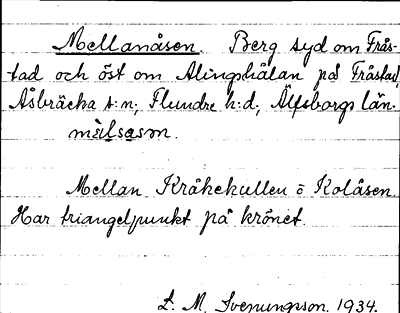 Mellanåsen. Berg syd om Frås-
tad och öst om Alingshålan på Fråstad,
Åsbräcka s:n, Flundre h:d, Älfsborgs län.
mèlsåsəm.
Mellan Kråkekullen o Kolåsen.
Har triangelpunkt på krönet.
L. M. Svenungsson. 1934.